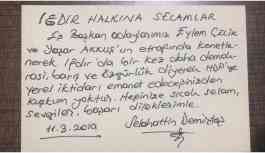 IĞDIR HALKINA SELAMLAR
Eş Başkan adaylarımız Eylem Çelik
ve Yaşar AKKUŞ'un etrafında kenetle-
nerek Iğdır'da bir kez daha demok-
rasi, barış ve özgürlük diyerek HDP'ye
yerel iktidarı emanet edeceğinizden
kuşkum yoktur. Hepinize sıcak selam,
sevgiler, başarı dileklerimle.
11.3.2019 Selahattin Demirtaş